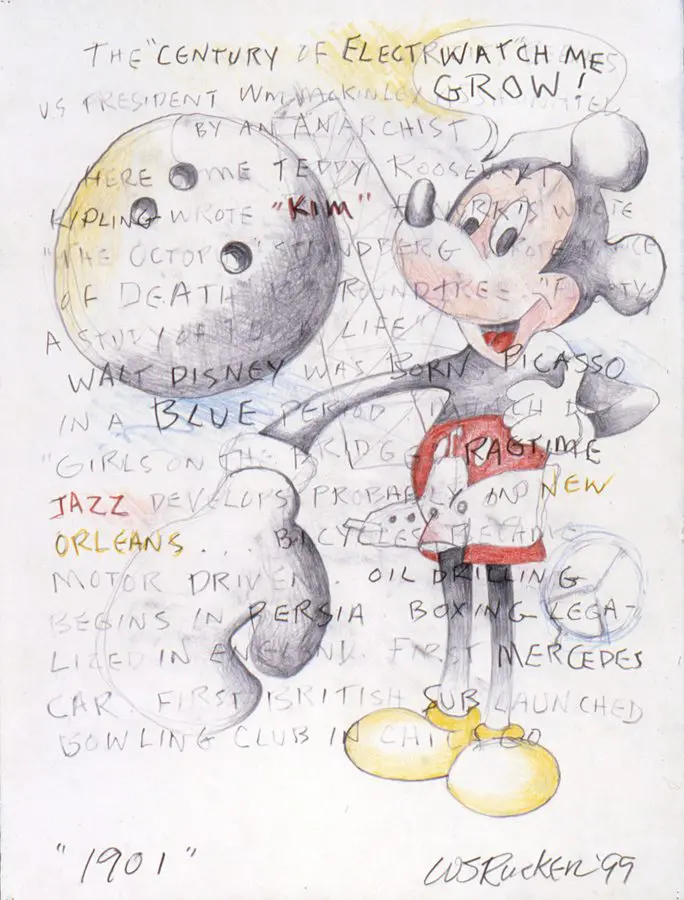 THE "CENTURY OF ELECTR
WATCH ME
GROW!
US PRESIDENT WM MACKINLEY
BY AN ANARCHIST)
HERE ME TEDDY ROOSEVELT
KIPLING WROTE "KIM" WROTE
"THE OCTOP
OF DEATH" ROUNDTREE
A STUDY OF LIFE"
WALT DISNEY WAS BORN PICASSO
IN A BLUE PERIOD
"GIRLS ON THE BRIDGE" RAGTIME
JAZZ DEVELOPS PROBABLY NEW
ORLEANS... BICYCLES
MOTOR DRIVEN. OIL DRILLING
BEGINS IN PERSIA. BOXING LEGA-
LIZED IN ENGLAND. FIRST MERCEDES
CAR. FIRST BRITISH SUB LAUNCHED
BOWLING CLUB IN CHICAGO
"1901"
WSRucker '99